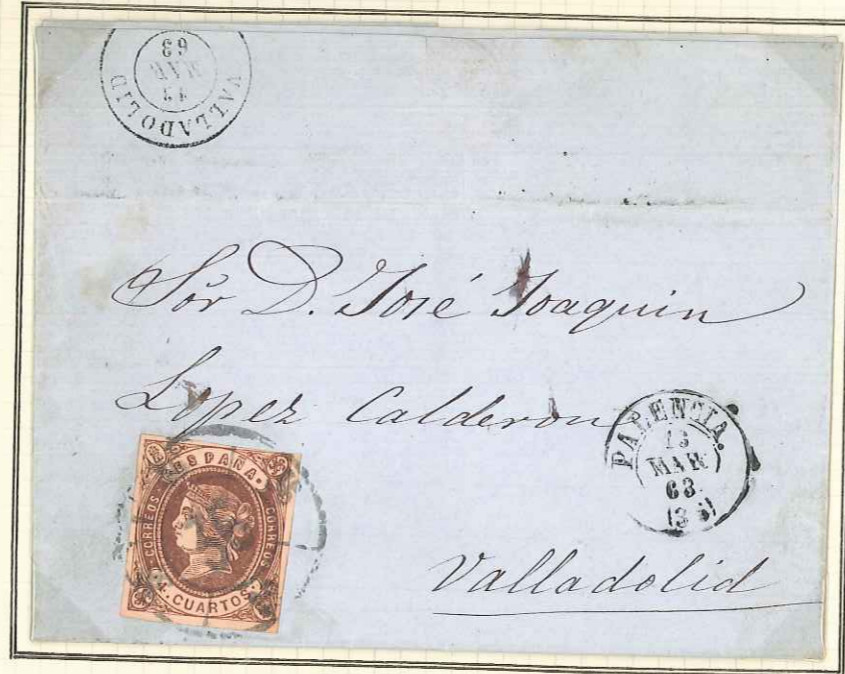 VALLADOLID
MAR
63
Sōr D. José Joaquin
Lopez Calderon
PALENCIA.
13
MAR
63
Valladolid
ESPAÑA.
CORREOS
CORREOS
4. CUARTOS.